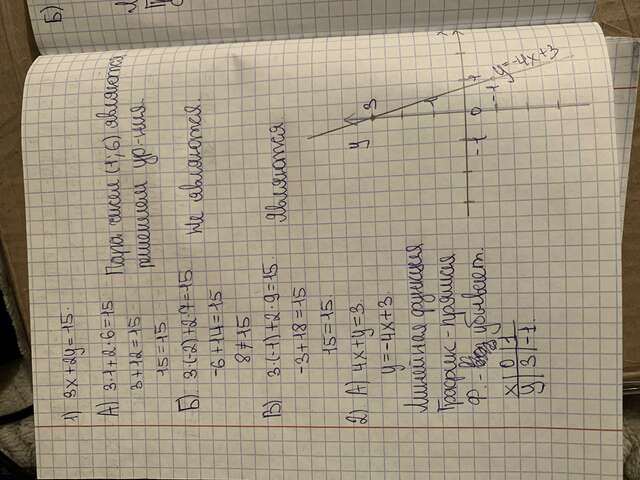 1) 3x+2y=15.
А) 3·1+2·6=15 Пара чисел (1;6) являются
3+12=15 решением ур-ния.
15=15
Б) 3·(-2)+2·7=15 не являются.
-6+14=15
8≠15
В) 3(-1)+2·9=15 являются
-3+18=15
15=15
2) А) 4x+y=3.
y=-4x+3.
Линейная функция
График - прямая
Ф.- убывает.
x 0 1
y 3 -1.
y
3
1
-1 0 1
-1
y=-4x+3
Б)